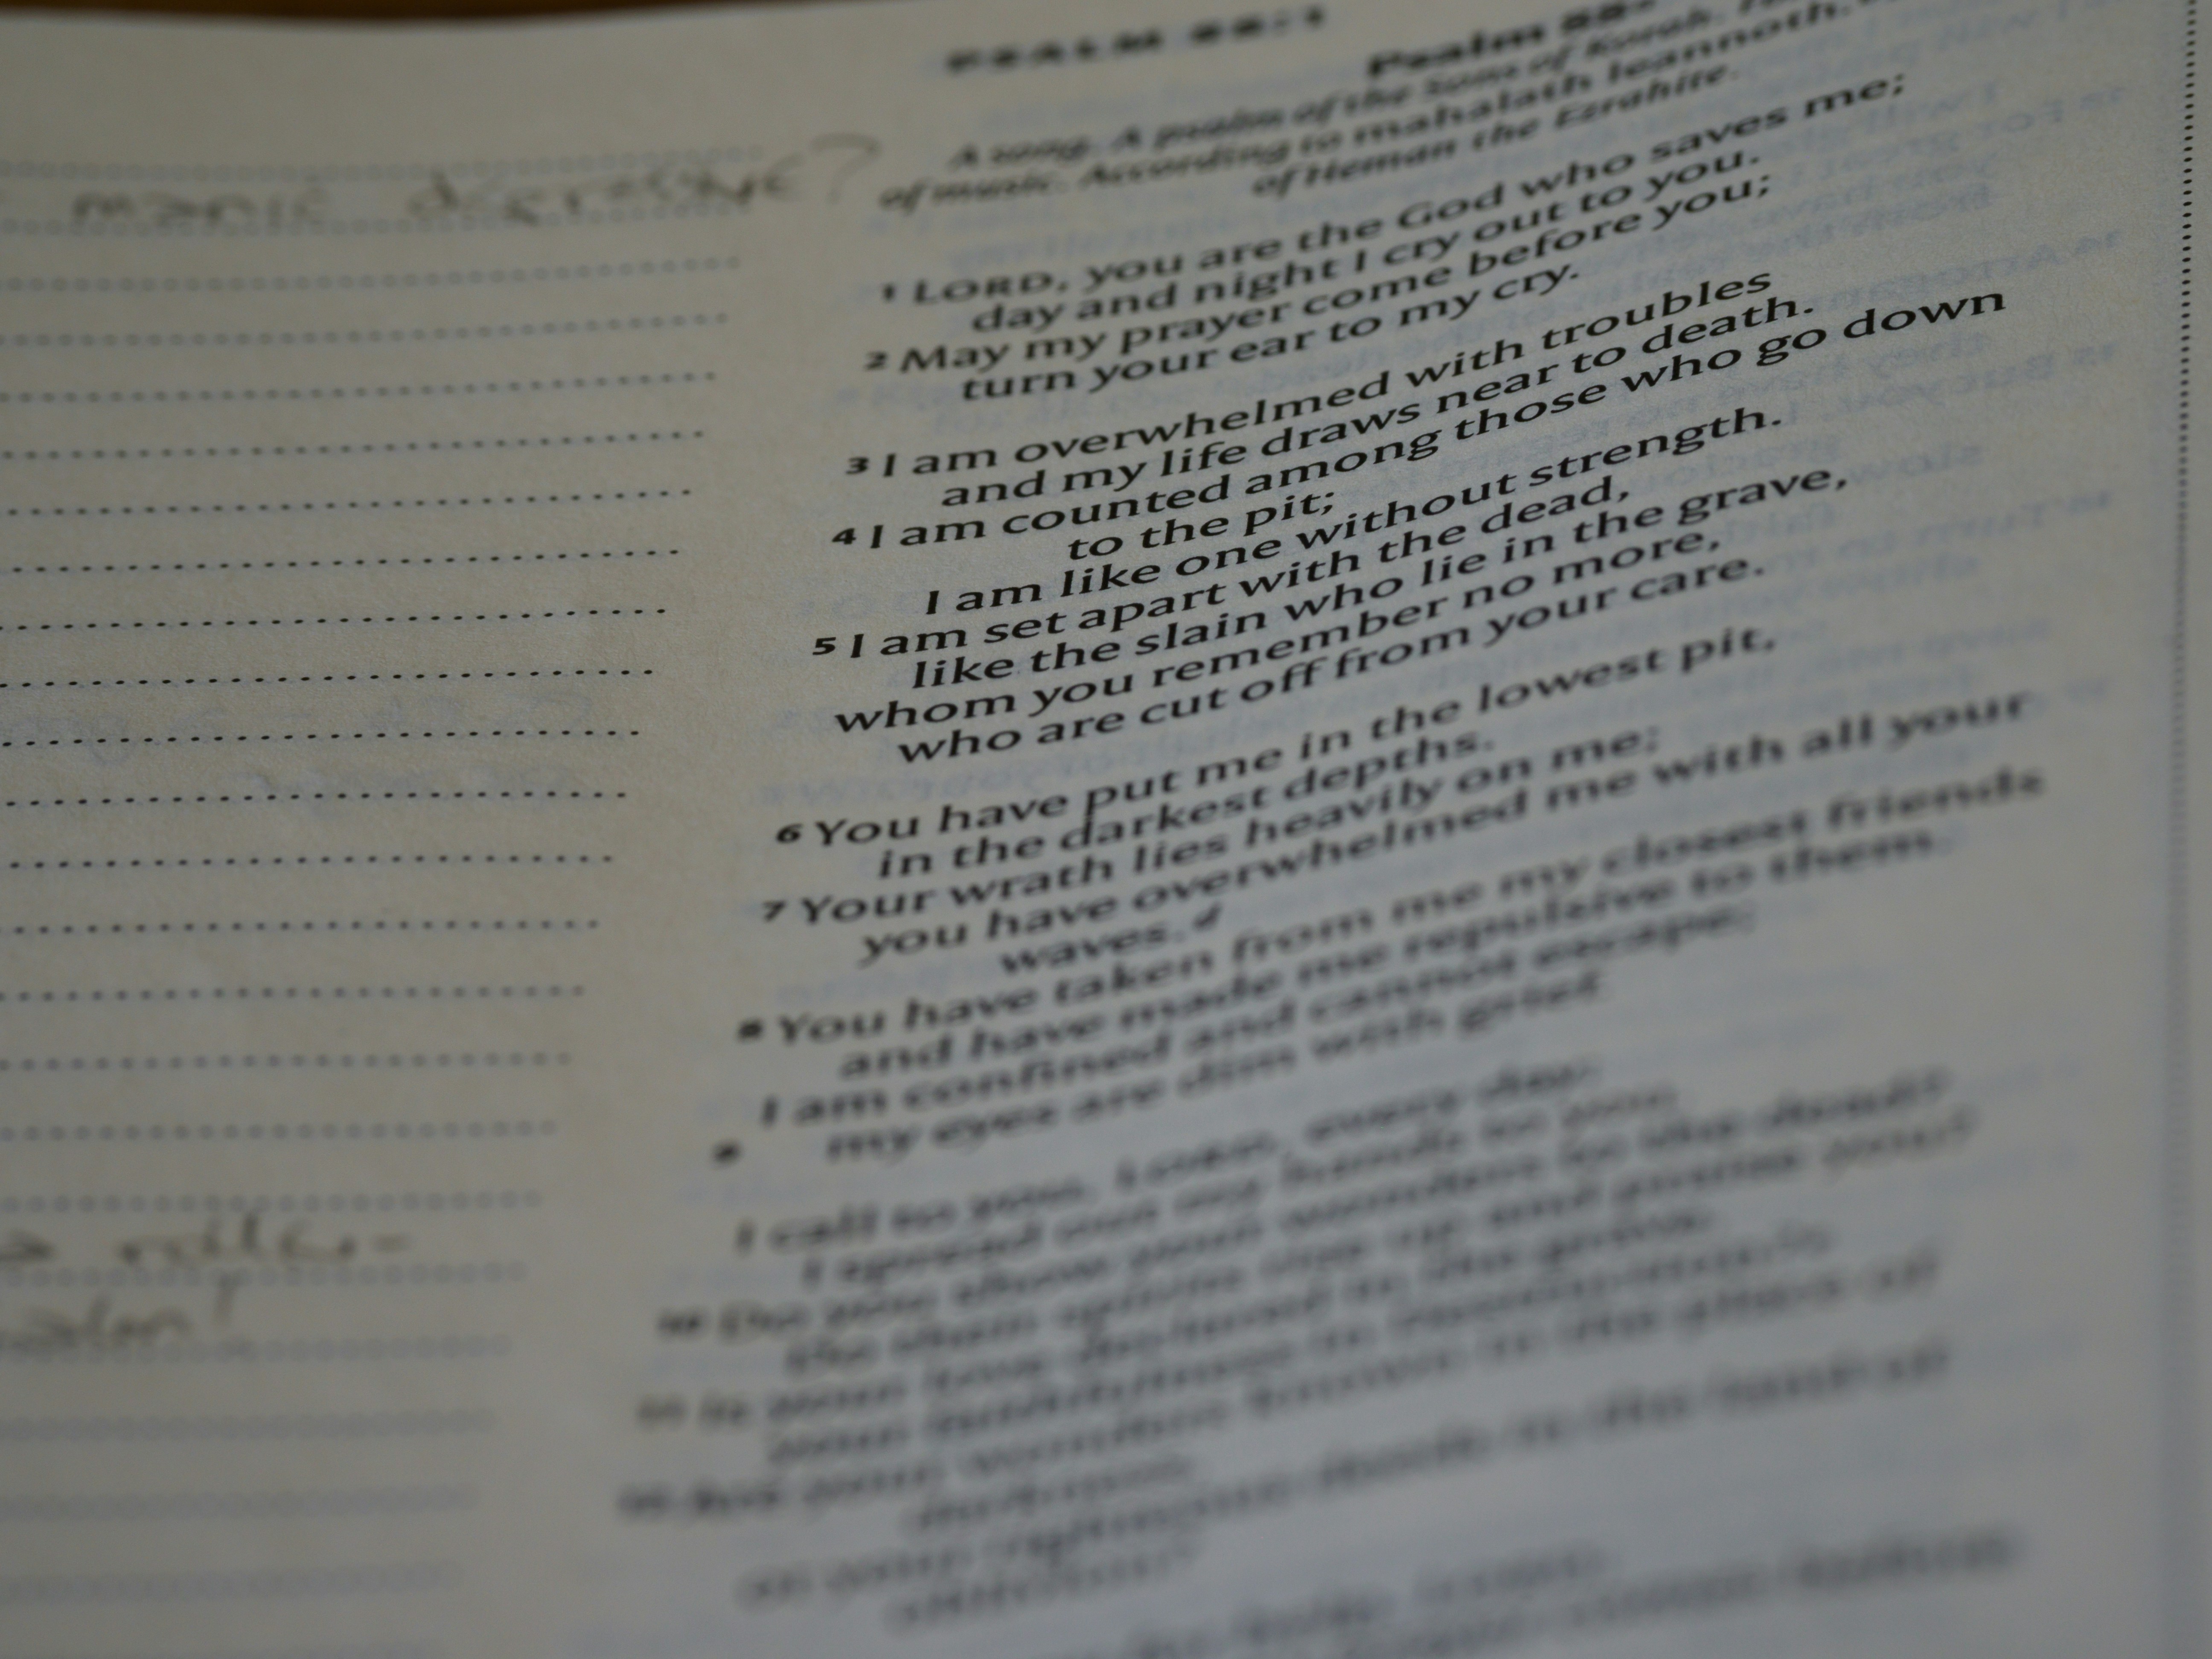 PSALM 88:1
manic depressive?
Psalm 88
A song. A psalm of the Sons of Korah.
of music. According to mahalath leannoth.
of Heman the Ezrahite.
1 LORD, you are the God who saves me;
day and night I cry out to you.
2 May my prayer come before you;
turn your ear to my cry.
3 I am overwhelmed with troubles
and my life draws near to death.
4 I am counted among those who go down
to the pit;
I am like one without strength.
5 I am set apart with the dead,
like the slain who lie in the grave,
whom you remember no more,
who are cut off from your care.
6 You have put me in the lowest pit,
in the darkest depths.
7 Your wrath lies heavily on me;
you have overwhelmed me with all your
waves. d
8 You have taken from me my closest friends
and have made me repulsive to them.
I am confined and cannot escape;
9 my eyes are dim with grief.
I call to you, LORD, every day;
I spread out my hands to you.
10 Do you show your wonders to the dead?
Do their spirits rise up and praise you?
11 Is your love declared in the grave,
your faithfulness in Destruction?
12 Are your wonders known in the place of
a roller-